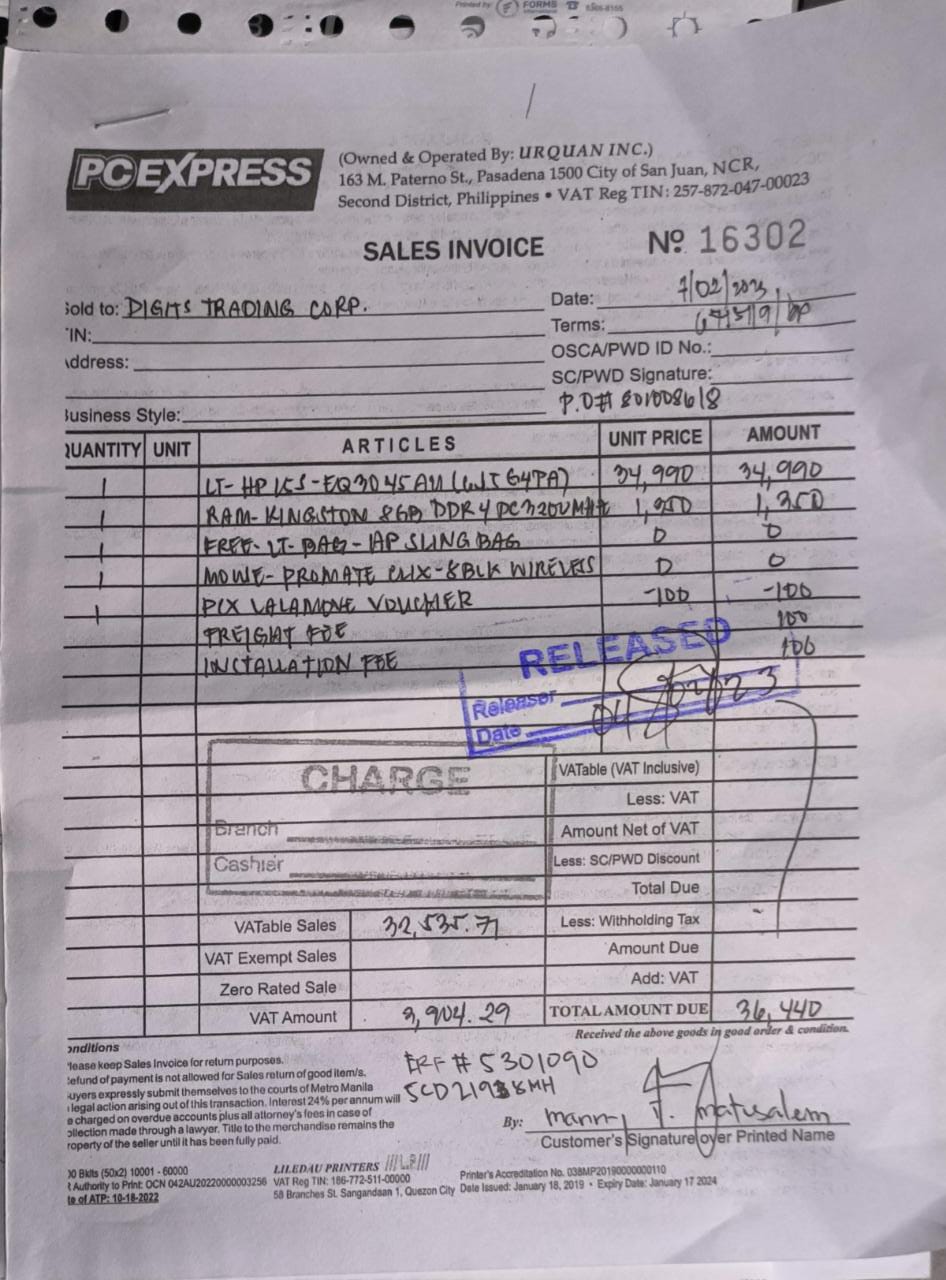 Printed by FORMS International
PCEXPRESS
(Owned & Operated By: URQUAN INC.)
163 M. Paterno St., Pasadena 1500 City of San Juan, NCR,
Second District, Philippines • VAT Reg TIN: 257-872-047-00023
SALES INVOICE
Nº 16302
Sold to: DIGITS TRADING CORP.
Date: 7/02/2023
TIN:
Terms:
Address:
OSCA/PWD ID No.:
SC/PWD Signature:
P.O# 801008618
Business Style:
QUANTITY UNIT ARTICLES UNIT PRICE AMOUNT
1 LT- HP 15S-EQ3045AU 34,990 34,990
1 RAM- KINGSTON 8GB DDR4 PC3200MHZ 1,350 1,350
1 FREE- LT- BAG- HP SLING BAG 0 0
1 PROMATE 8BLK WIRELESS 0 0
1 PCX LALAMOVE VOUCHER -100 -100
FREIGHT FEE 100
INSTALLATION FEE 100
RELEASED
Releaser
Date
CHARGE
Branch
Cashier
VATable (VAT Inclusive)
Less: VAT
Amount Net of VAT
Less: SC/PWD Discount
Total Due
VATable Sales 32,535.71 Less: Withholding Tax
VAT Exempt Sales Amount Due
Zero Rated Sale Add: VAT
VAT Amount 3,904.29 TOTAL AMOUNT DUE 36,440
Received the above goods in good order & condition.
onditions
lease keep Sales Invoice for return purposes.
efund of payment is not allowed for Sales return of good item/s.
uyers expressly submit themselves to the courts of Metro Manila
legal action arising out of this transaction. Interest 24% per annum will
e charged on overdue accounts plus all attorney's fees in case of
ollection made through a lawyer. Title to the merchandise remains the
roperty of the seller until it has been fully paid.
ERF # 5301090
By: Manny F. Matusalem
Customer's Signature over Printed Name
00 Bklts (50x2) 10001 - 60000
Authority to Print: OCN 042AU20220000003256
te of ATP: 10-18-2022
LILEDAU PRINTERS
VAT Reg TIN: 186-772-511-00000
58 Branches St. Sangandaan 1, Quezon City
Printer's Accreditation No. 038MP20190000000110
Date Issued: January 18, 2019 • Expiry Date: January 17 2024